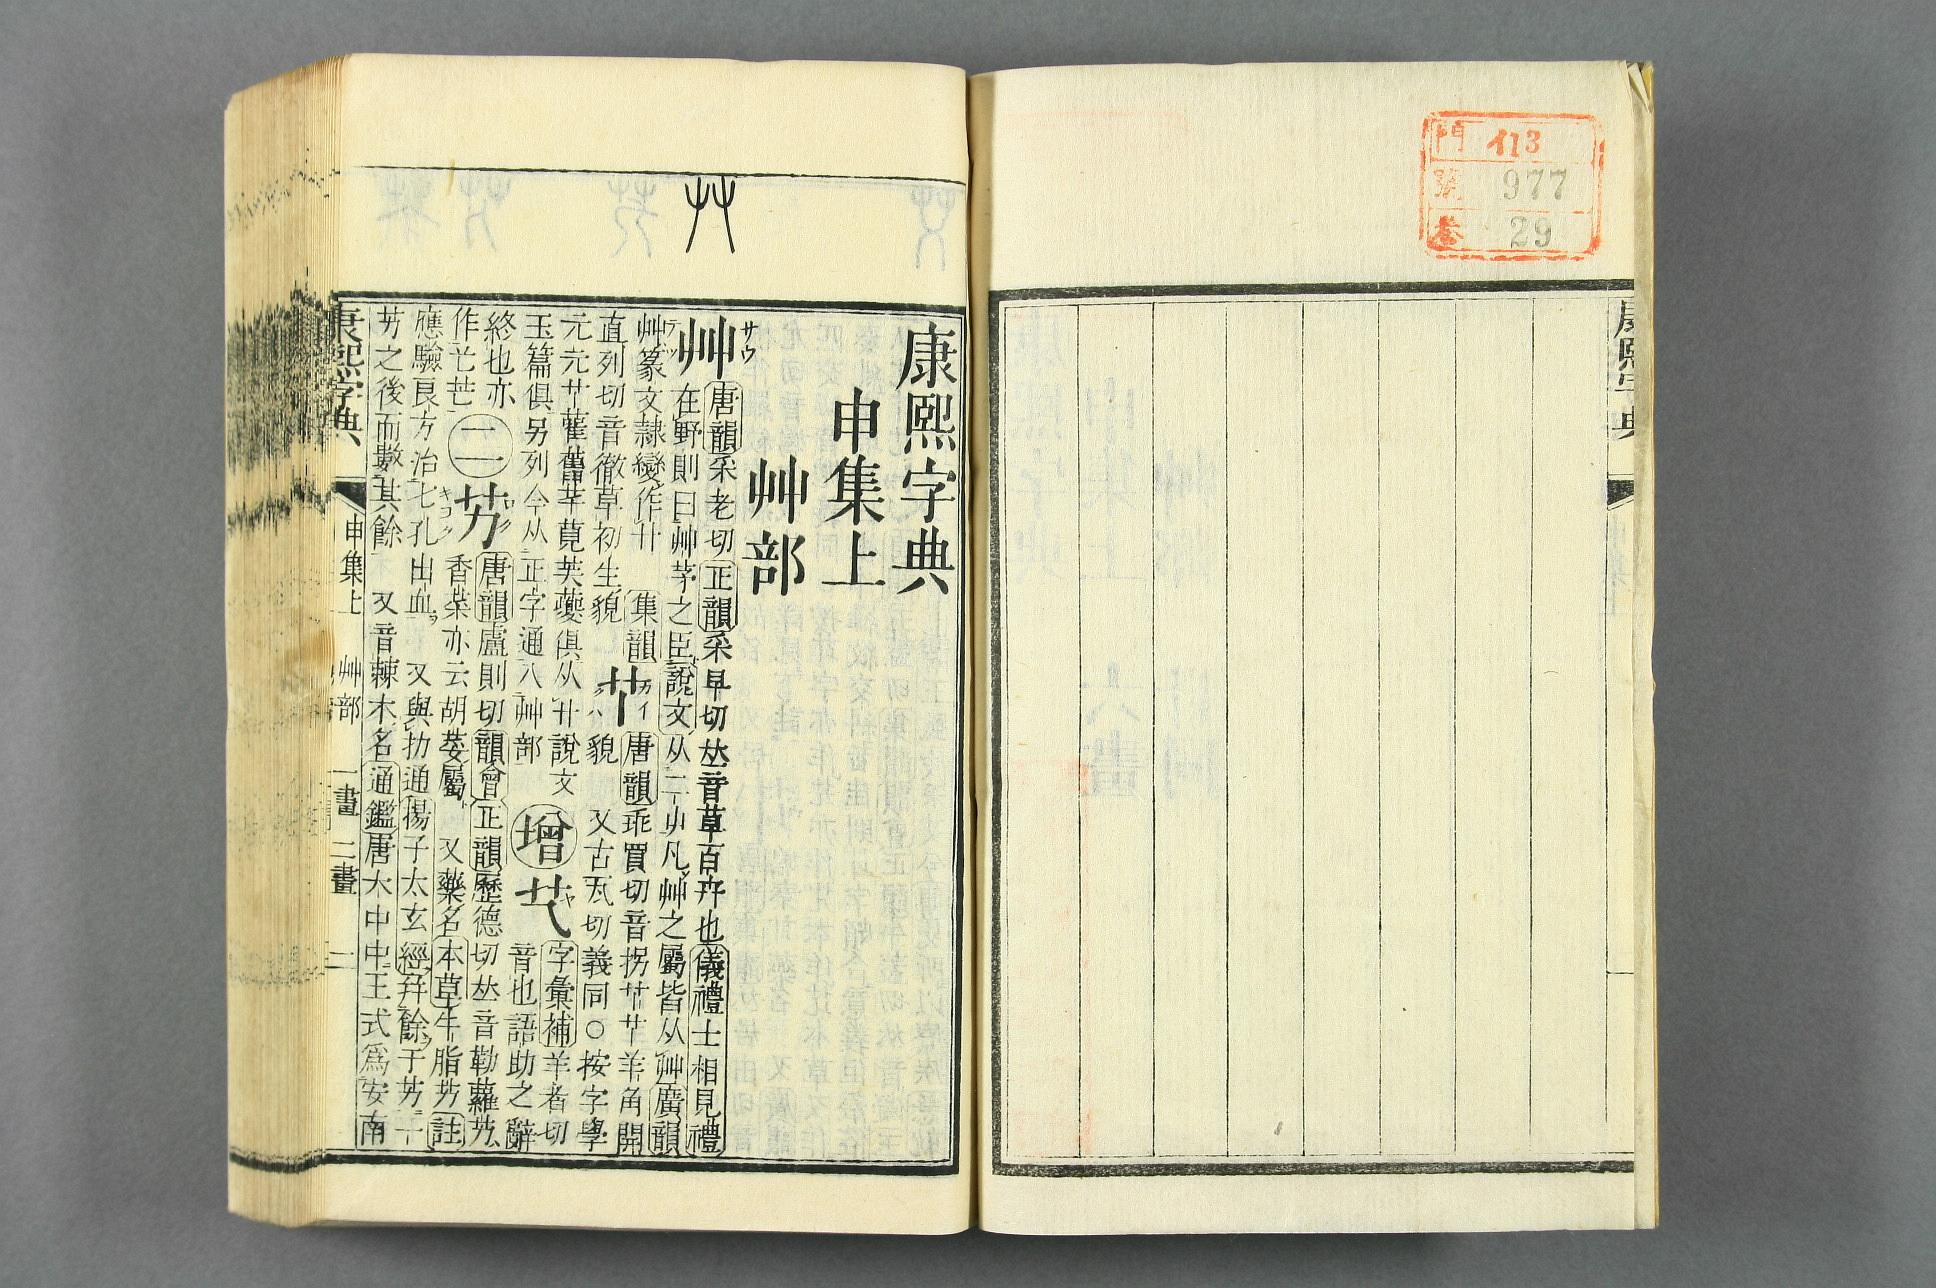 門 113
號 977
卷 29
康熙字典
康熙字典
申集上
艸部
艸
サウ
艸
唐韻采老切正韻采早切𠀤音草百卉也儀禮士相見禮
在野則曰艸茅之臣說文从二屮凡艸之屬皆从艸廣韻
艸篆文隸變作卄
集韻
艼
唐韻乖買切音拐艼艼羊角開
直列切音徹草初生貌
貌 又古瓦切義同○按字學
元元艼雚舊芈莧英薎俱从卝說文
玉篇俱另列今从正字通入艸部
增
字彙補羊者切
音也語助之辭
終也亦
作芒芒
二
艻
唐韻盧則切韻會正韻歷德切𠀤音勒蘿艻
香菜亦云胡荽屬 又藥名本草牛脂艻註
應驗良方治七孔出血 又與扐通揚子太玄經幷餘于艻一
艻之後而數其餘 又音棘木名通鑑唐大中中王式爲安南
康熙字典
申集上
艸部
一畫
二畫
二